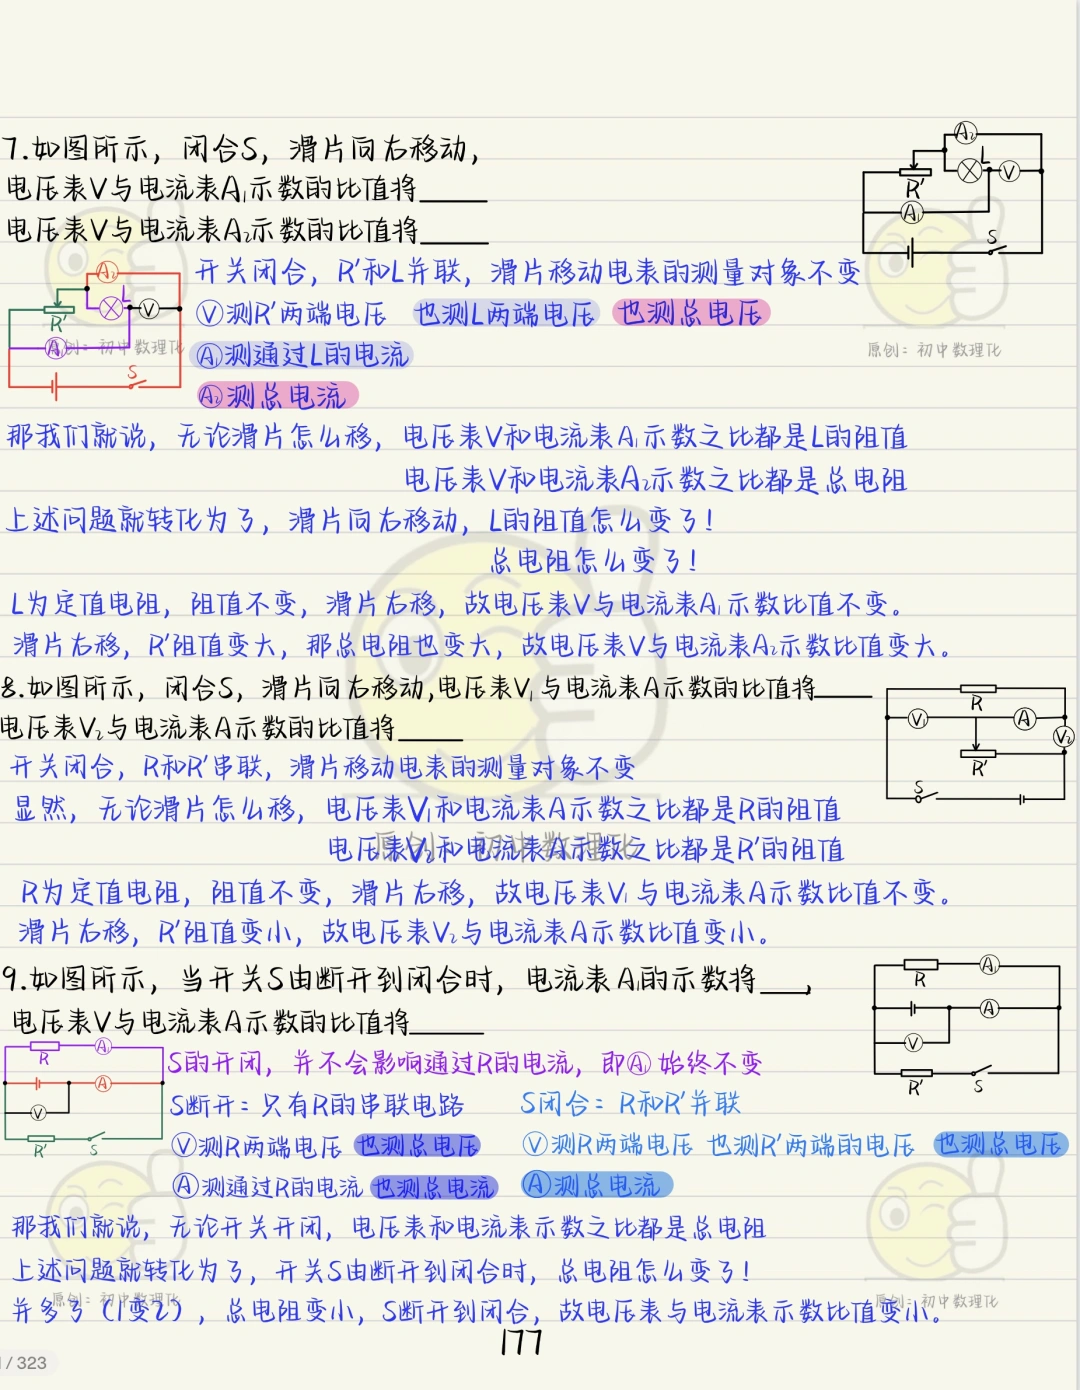 7.如图所示，闭合S，滑片向右移动，
电压表V与电流表A₁示数的比值将____
电压表V与电流表A₂示数的比值将____
A₂
L
V
R′
A₁
S
开关闭合，R′和L并联，滑片移动电表的测量对象不变
Ⓥ测R′两端电压 也测L两端电压 也测总电压
Ⓐ₁测通过L的电流
Ⓐ₂测总电流
A₂
L
V
R′
A₁
S
原创：初中数理化
原创：初中数理化
那我们就说，无论滑片怎么移，电压表V和电流表A₁示数之比都是L的阻值
电压表V和电流表A₂示数之比都是总电阻
上述问题就转化为了，滑片向右移动，L的阻值怎么变了！
总电阻怎么变了！
L为定值电阻，阻值不变，滑片右移，故电压表V与电流表A₁示数比值不变。
滑片右移，R′阻值变大，那总电阻也变大，故电压表V与电流表A₂示数比值变大。
8.如图所示，闭合S，滑片向右移动，电压表V₁与电流表A示数的比值将____
电压表V₂与电流表A示数的比值将____
R
V₁
A
V₂
R′
S
开关闭合，R和R′串联，滑片移动电表的测量对象不变
显然，无论滑片怎么移，电压表V₁和电流表A示数之比都是R的阻值
电压表V₂和电流表A示数之比都是R′的阻值
原创：初中数理化
R为定值电阻，阻值不变，滑片右移，故电压表V₁与电流表A示数比值不变。
滑片右移，R′阻值变小，故电压表V₂与电流表A示数比值变小。
9.如图所示，当开关S由断开到闭合时，电流表A₁的示数将___，
电压表V与电流表A示数的比值将____
R
A₁
A
V
R′
S
S的开闭，并不会影响通过R的电流，即Ⓐ₁始终不变
R
A₁
A
V
R′
S
S断开：只有R的串联电路 S闭合：R和R′并联
Ⓥ测R两端电压 也测总电压 Ⓥ测R两端电压 也测R′两端的电压 也测总电压
Ⓐ测通过R的电流 也测总电流 Ⓐ测总电流
那我们就说，无论开关开闭，电压表和电流表示数之比都是总电阻
上述问题就转化为了，开关S由断开到闭合时，总电阻怎么变了！
原创：初中数理化
原创：初中数理化
并多了（1变2），总电阻变小，S断开到闭合，故电压表与电流表示数比值变小。
177
/ 323